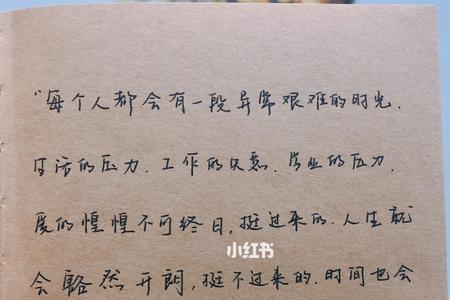 “每个人都会有一段异常艰难的时光.
生活的压力.工作的失意.学业的压力.
爱的惶惶不可终日,挺过来的.人生就
会豁然开朗,挺不过来的.时间也会
小红书